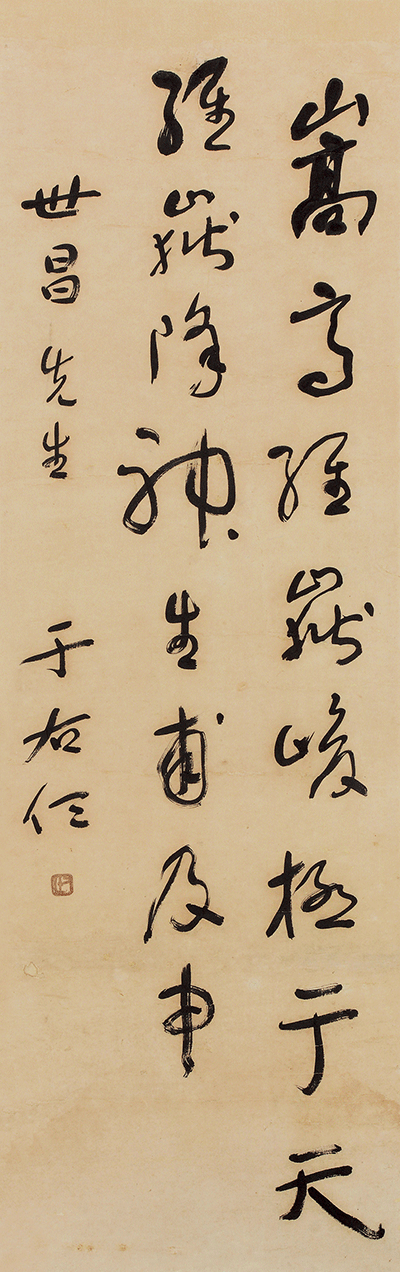 嵩高維嶽峻極于天
維嶽降神生甫及申
世昌先生
于右任